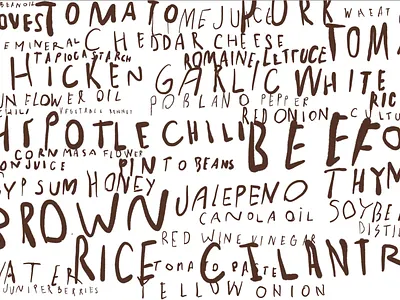 BEAN OIL
OVES TOMATO LIME JUICE PORK WHEAT
MINERAL CHEDDAR CHEESE TOMA
TAPIOCA STARCH ROMAINE LETTUCE
HICKEN GARLIC WHITE
UN FLOWER OIL POBLANO PEPPER RIC
CHILI RED ONION CULTU
HIPOTLE CHILI BEEF
CORN MASA FLOWER
ON JUICE PINTO BEANS THYM
GYPSUM HONEY JALEPENO
BROWN CANOLA OIL SOYBEA
RED WINE VINEGAR DISTIL
WATER RICE CILANTR
TOMATO PASTE
JUNIPER BERRIES YELLOW ONION